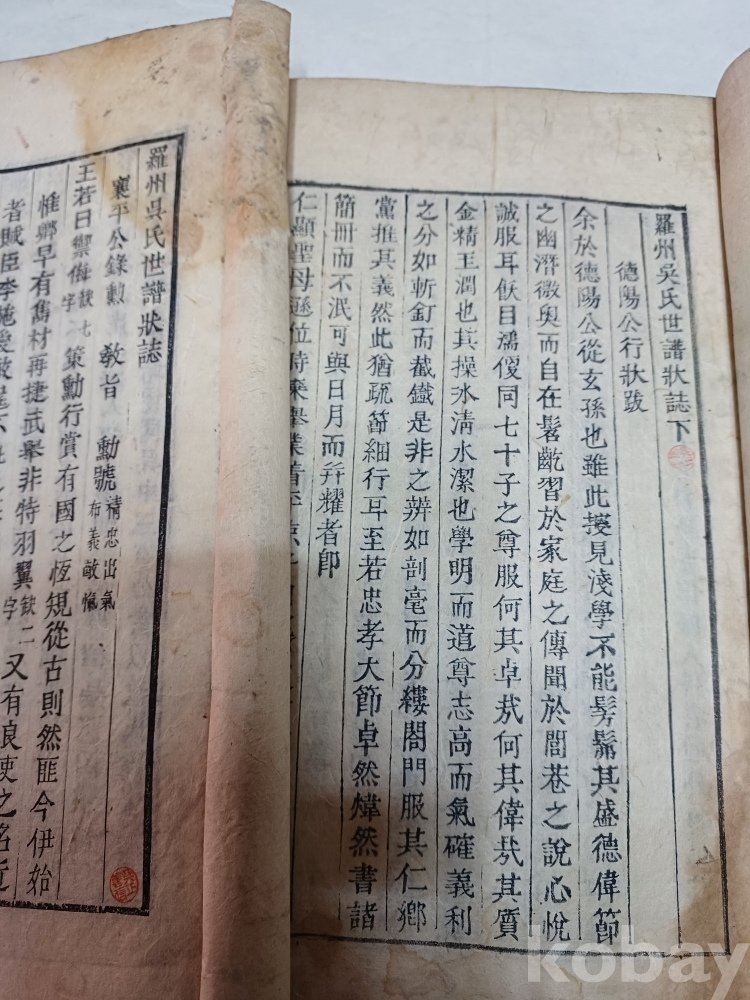 羅州吳氏世譜狀誌下
德陽公行狀跋
余於德陽公從玄孫也雖此㩳見淺學不能髣髴其盛德偉節
之幽潛微奥而自在髫齔習於家庭之傳聞於閭巷之說心悅
誠服耳飫目濡僾同七十子之尊服何其卓㢤何其偉㢤其質
金精玉潤也其操氷清水潔也學明而道尊志高而氣確義利
之分如斬釘而截鐵是非之辨如剖毫而分縷閤門服其仁鄉
黨推其義然此猶疏節細行耳至若忠孝大節卓然煒然書諸
簡冊而不泯可與日月而并耀者卽
仁顯聖母遜位時
羅州吳氏世譜狀誌
襄平公錄勳 敎旨 勳號 精忠出氣 布義敵愾
王若曰禦侮 缺七字 策勳行賞有國之恆規從古則然匪今伊始
惟卿早有雋材再捷武擧非特羽翼 缺二字 又有良
者賊臣李施愛
kobay